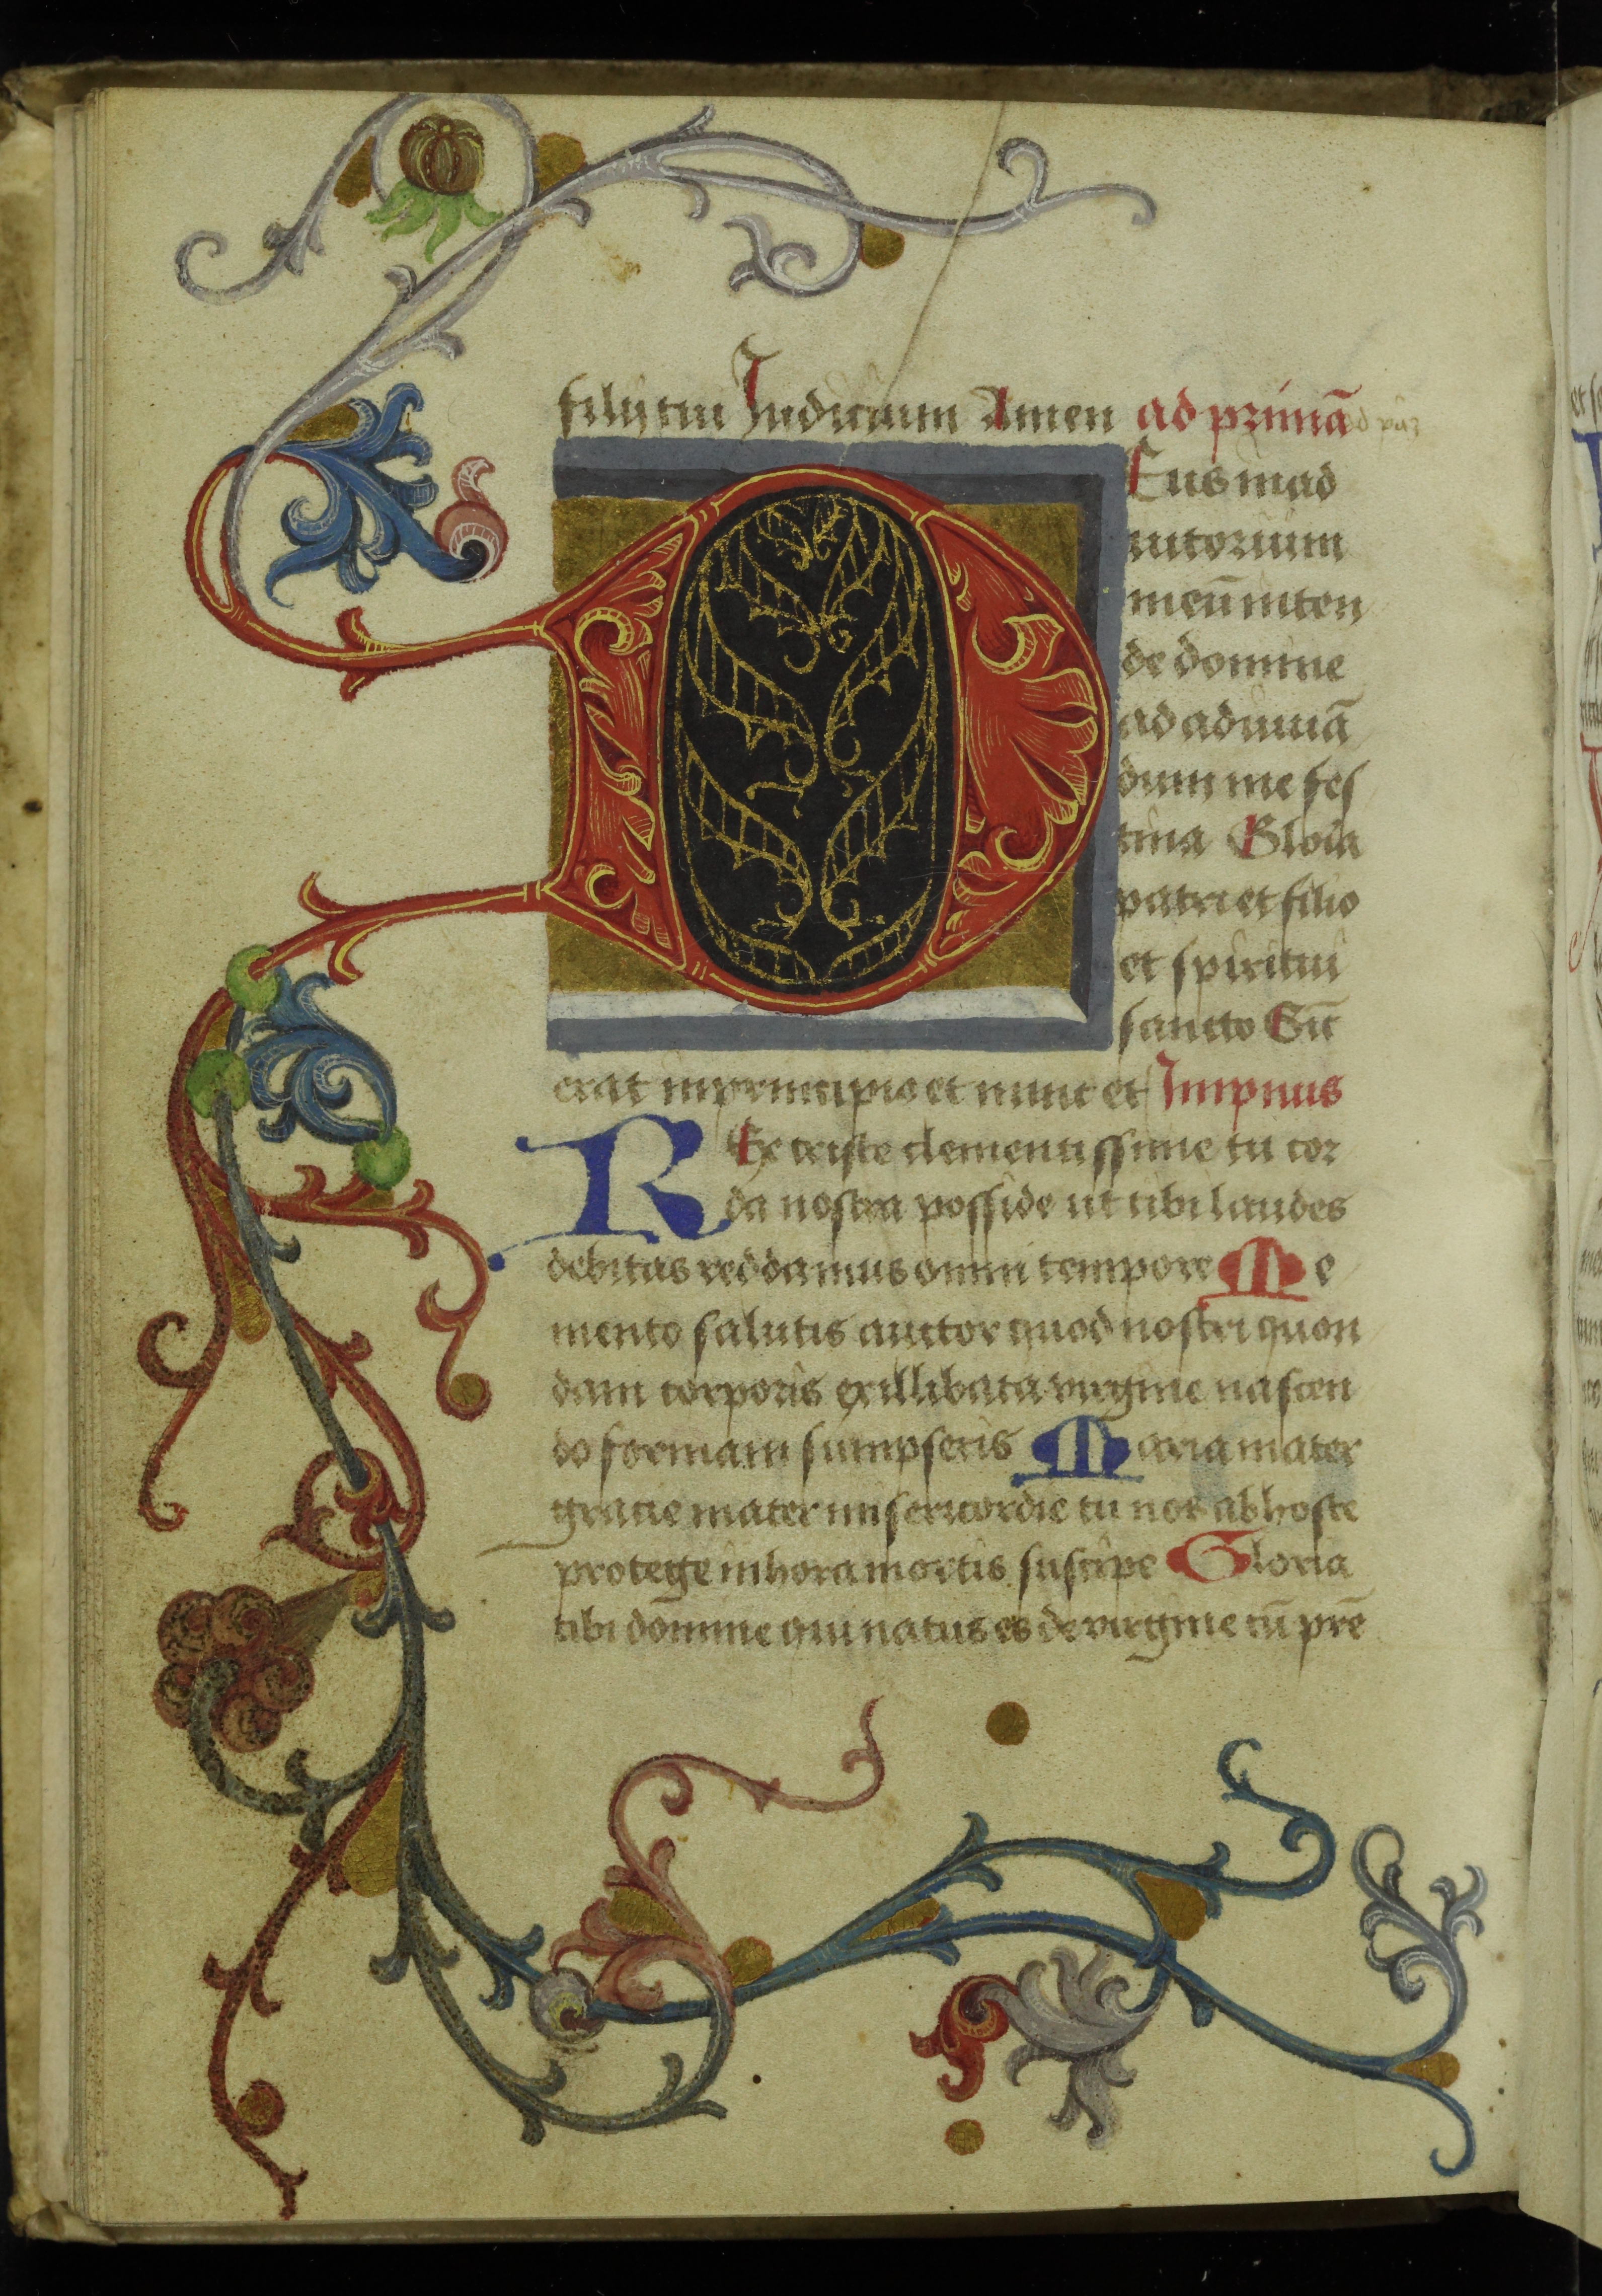 filij tui Iudicium Amen ad primā
DEus in ad
iutorium
meū inten
de domine
ad adiuuā
dum me fes
tina Gloria
patri et filio
et spiritui
sancto Sic̄
erat in principio et nunc et Impnus
REx criste clementissime tu cor
da nostra posside ut tibi laudes
debitas reddamus omni tempore Me
mento salutis auctor quod nostri quon
dam corporis ex illibata virgine nascen
do formam sumpseris Maria mater
gracie mater misericordie tu nos ab hoste
protege in hora mortis suscipe Gloria
tibi dōmine qui natus es de virgine cū prē